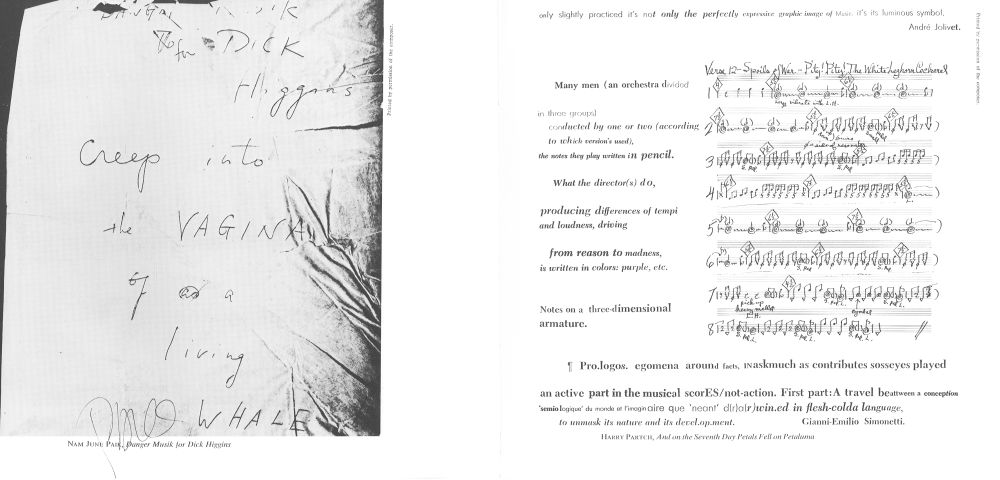 DANGER MUSIK
for DICK
Higgins
Creep into
the VAGINA
of a
living
WHALE
Printed by permission of the composer.
NAM JUNE PAIK, Danger Musik for Dick Higgins
only slightly practiced it's not only the perfectly expressive graphic image of Music. it's its luminous symbol.
André Jolivet.
Printed by permission of the composer.
Verse 12 - Spoils of War - Pity! Pity! The White Leghorn Cockerel
Many men (an orchestra divided
in three groups)
conducted by one or two (according
to which version's used),
the notes they play written in pencil.
What the director(s) do,
producing differences of tempi
and loudness, driving
from reason to madness,
is written in colors: purple, etc.
Notes on a three-dimensional
armature.
1
2
3
4
5
6
7
pick up
heavy mallet
L.H.
8
¶ Pro.logos. egomena around facts, INaskmuch as contributes sosseyes played
an active part in the musical scorES/not-action. First part:A travel beattween a conception
'semiologique' du monde et l'imaginaire que 'neant' d(r)a(r)win.ed in flesh-colda language,
to unmask its nature and its devel.op.ment.
Gianni-Emilio Simonetti.
HARRY PARTCH, And on the Seventh Day Petals Fell on Petaluma